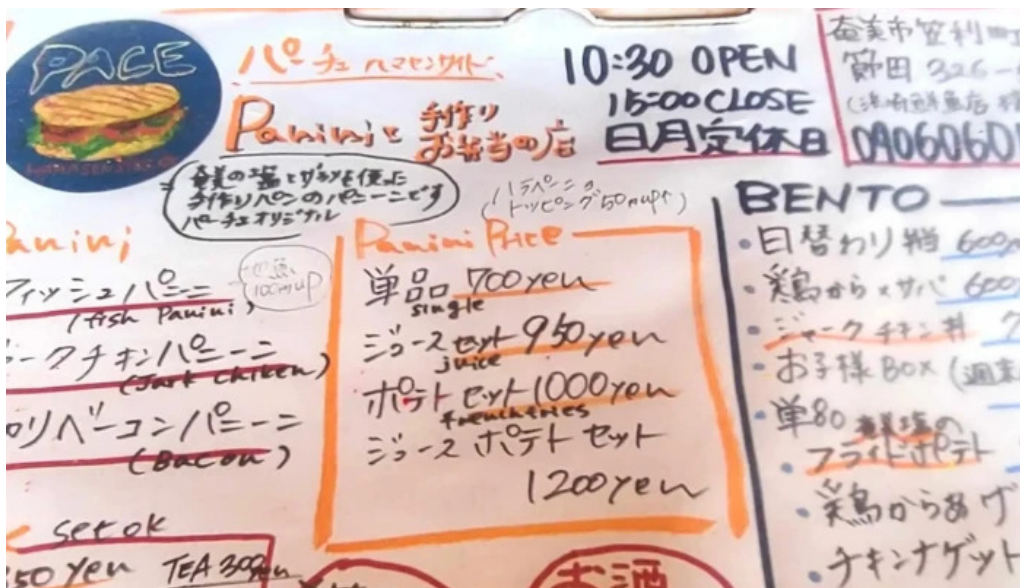 PACE
パーチェ ハマセンサイド
Paniniと 手作り
お弁当の店
10:30 OPEN
15:00 CLOSE
日月定休日
奄美市笠利町
節田 326-
0906060
奄美の塩とザラメを使った
手作りパンのパニーニです
パーチェオリジナル
ハラペーニョ
トッピング50円up↑
Panini
フィッシュパニーニ
(fish Panini)
100円up
ークチキンパニーニ
(Jark chiken)
ロリベーコンパニーニ
(Bacon)
set ok
50 yen TEA 300yen
Panini Price
単品 700yen
single
ジュースセット 950yen
juice
ポテトセット 1000yen
french fries
ジュースポテトセット
1200yen
お酒
BENTO
・日替わり弁当 600
・鶏から×サバ 600
・ジャークチキン丼
・お子様BOX (週末
・単品 奄美塩の
・フライドポテト
・鶏からあげ
・チキンナゲット